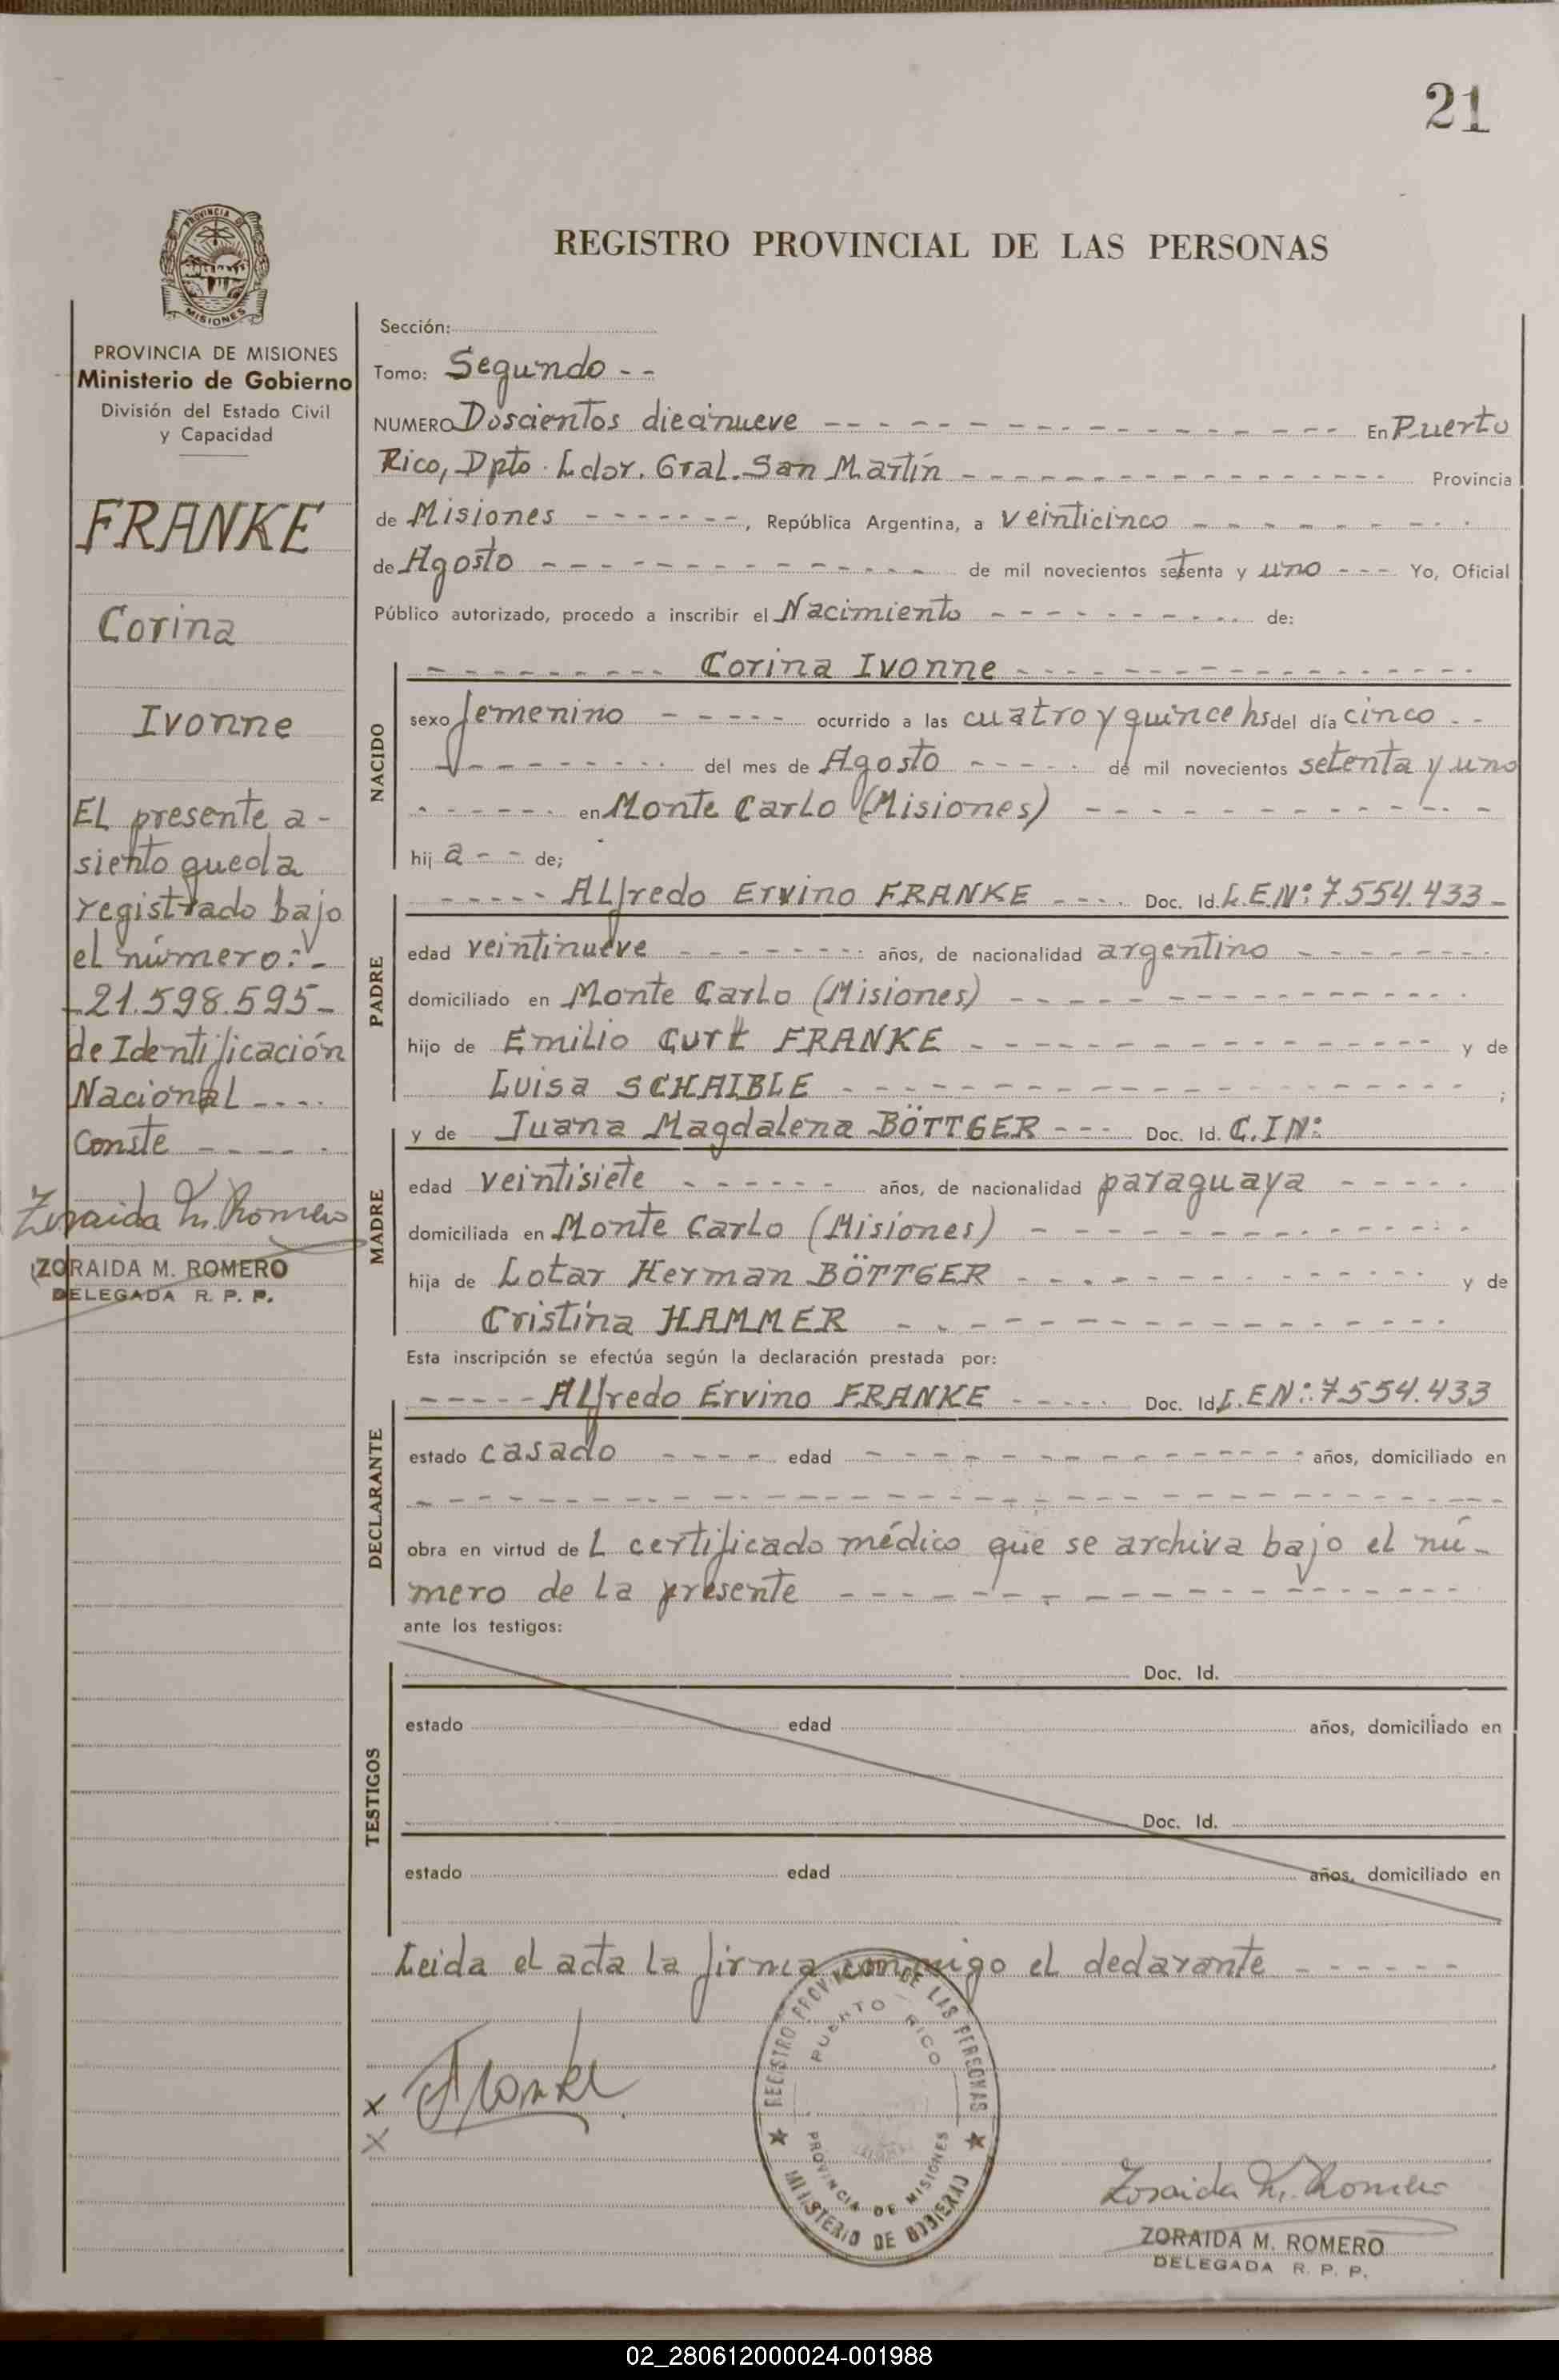 21
PROVINCIA DE
MISIONES
REGISTRO PROVINCIAL DE LAS PERSONAS
PROVINCIA DE MISIONES
Ministerio de Gobierno
División del Estado Civil
y Capacidad
FRANKE
Corina
Ivonne
El presente a-
siento queda
registrado bajo
el número:-
-21.598.595-
de Identificación
Nacional ----
Conste ----
Zoraida M. Romero
ZORAIDA M. ROMERO
DELEGADA R. P. P.
Sección:
Tomo: Segundo --
NUMERO Doscientos diecinueve ---- En Puerto
Rico, Dpto. Ldor. Gral. San Martín ---- Provincia
de Misiones ----, República Argentina, a veinticinco ----
de Agosto ---- de mil novecientos setenta y uno --- Yo, Oficial
Público autorizado, procedo a inscribir el Nacimiento ---- de:
NACIDO
---- Corina Ivonne ----
sexo femenino ---- ocurrido a las cuatro y quince hs del día cinco --
---- del mes de Agosto ---- de mil novecientos setenta y uno
---- en Monte Carlo (Misiones) ----
hij a -- de;
PADRE
---- Alfredo Ervino FRANKE ---- Doc. Id. L.E Nº: 7.554.433-
edad veintinueve ---- años, de nacionalidad argentino ----
domiciliado en Monte Carlo (Misiones) ----
hijo de Emilio Curt FRANKE ---- y de
Luisa SCHAIBLE ---- ;
MADRE
y de Juana Magdalena BÖTTGER --- Doc. Id. C.I Nº:
edad veintisiete ---- años, de nacionalidad paraguaya ----
domiciliada en Monte Carlo (Misiones) ----
hija de Lotar Herman BÖTTGER ---- y de
Cristina HAMMER ----
Esta inscripción se efectúa según la declaración prestada por:
DECLARANTE
---- Alfredo Ervino FRANKE ---- Doc. Id. L.E Nº: 7.554.433
estado casado ---- edad ---- años, domiciliado en
----
obra en virtud de l certificado médico que se archiva bajo el nú-
mero de la presente ----
ante los testigos:
TESTIGOS
Doc. Id.
estado edad años, domiciliado en
Doc. Id.
estado edad años, domiciliado en
Leida el acta la firma conmigo el declarante ----
x Franke
x
REGISTRO PROVINCIAL DE LAS PERSONAS
PUERTO RICO
PROVINCIA DE MISIONES
MINISTERIO DE GOBIERNO
Zoraida M. Romero
ZORAIDA M. ROMERO
DELEGADA R. P. P.
02_280612000024-001988